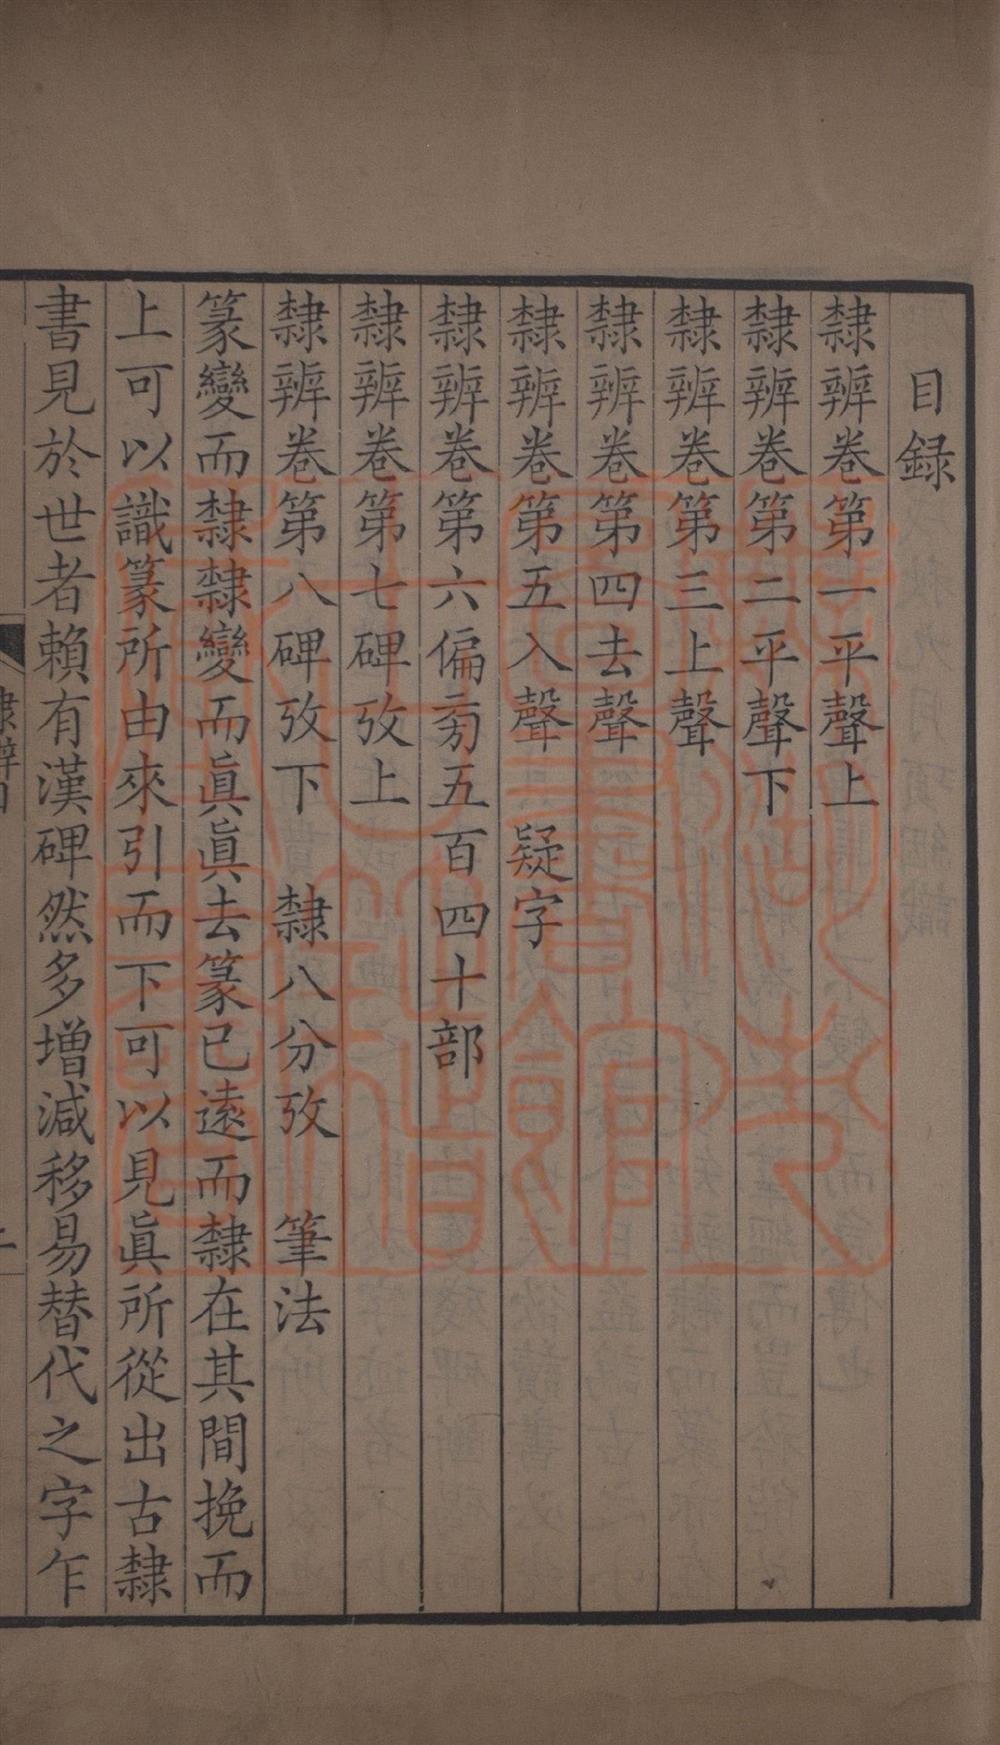 目録
隸辨卷第一平聲上
隸辨卷第二平聲下
隸辨卷第三上聲
隸辨卷第四去聲
隸辨卷第五入聲 疑字
隸辨卷第六偏㫄五百四十部
隸辨卷第七碑攷上
隸辨卷第八碑攷下 隸八分攷 筆法
篆變而隸隸變而眞眞去篆已遠而隸在其間挽而
上可以識篆所由來引而下可以見眞所從出古隸
書見於世者賴有漢碑然多增減移易替代之字乍